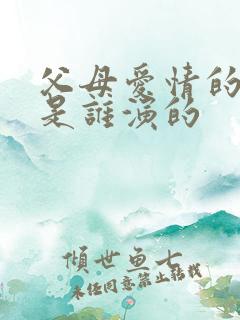 父母愛情的
是誰演的
傾世魚七
未经同意禁止转载